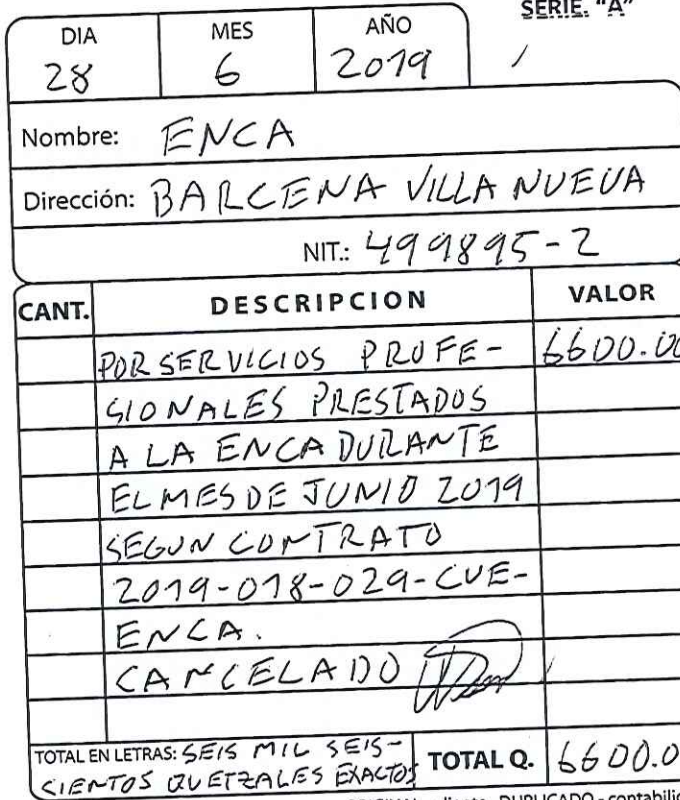 SERIE. "A"
DIA MES AÑO
28 6 2019
Nombre: ENCA
Dirección: BARCENA VILLA NUEVA
NIT.: 499895-2
CANT. DESCRIPCION VALOR
POR SERVICIOS PROFE- 6600.00
SIONALES PRESTADOS
A LA ENCA DURANTE
EL MES DE JUNIO 2019
SEGUN CONTRATO
2019-018-029-CUE-
ENCA.
CANCELADO
TOTAL EN LETRAS: SEIS MIL SEIS-
CIENTOS QUETZALES EXACTOS TOTAL Q. 6600.0
DUPLICADO - contabilid